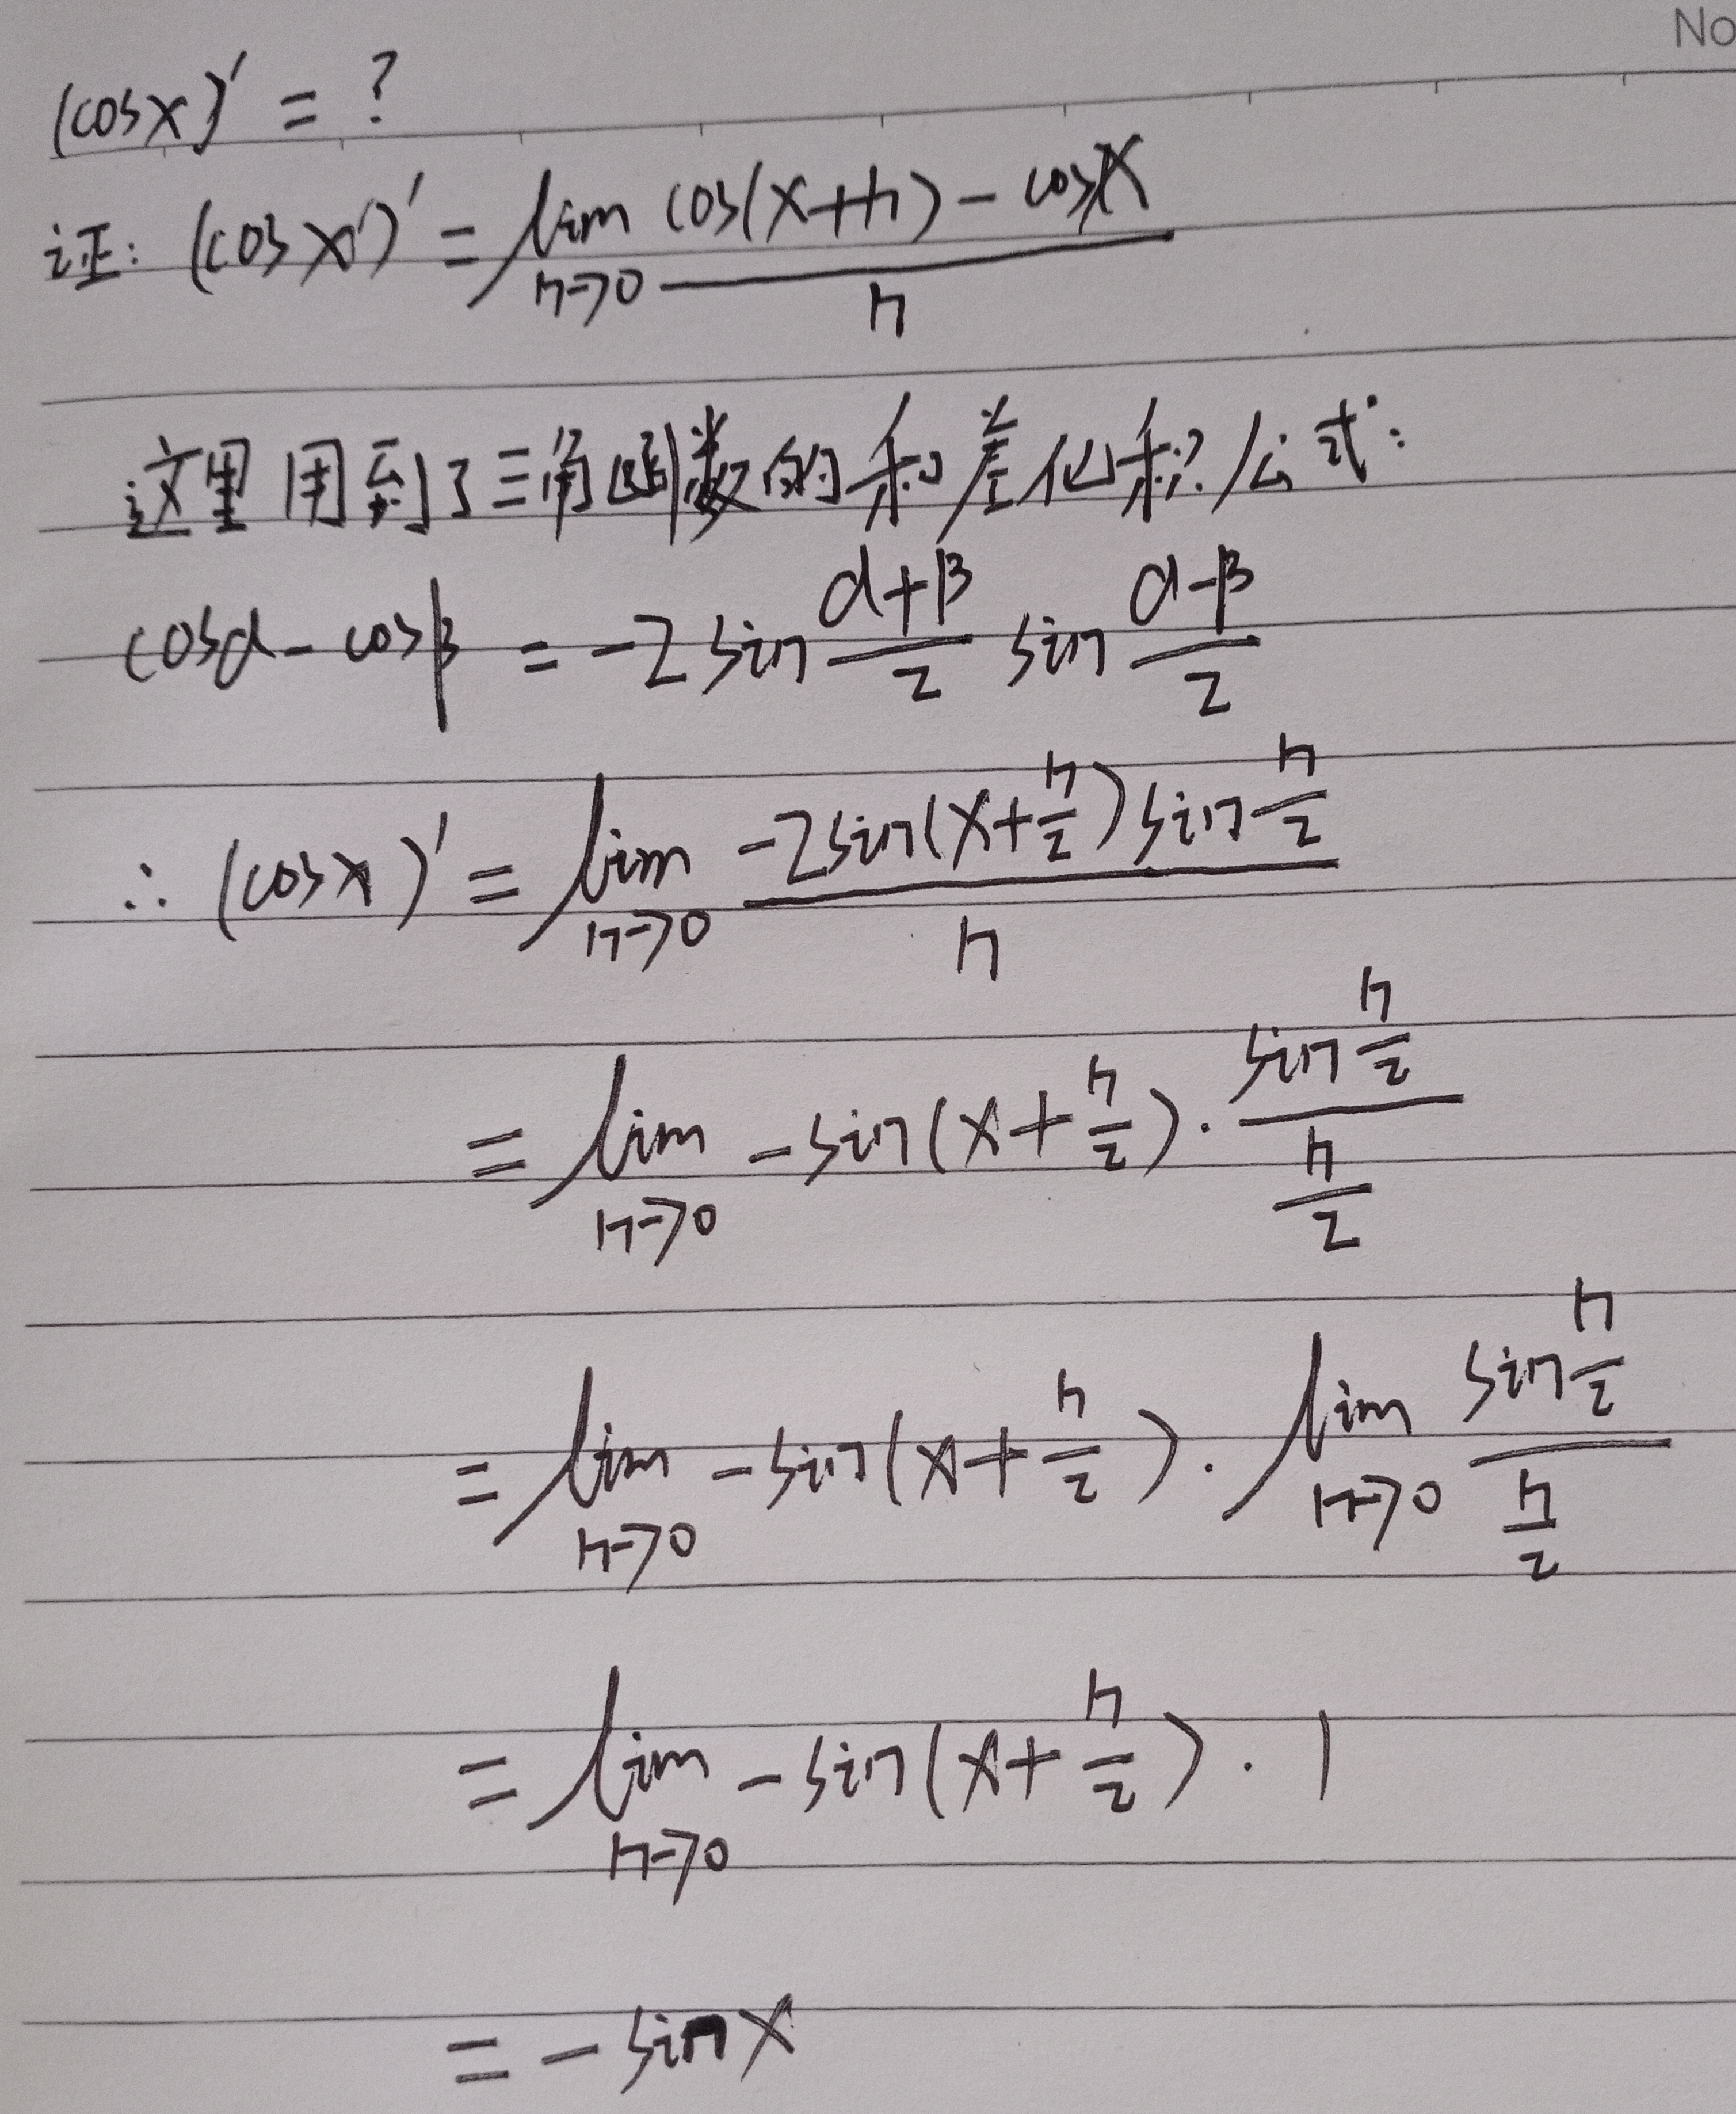 No
(cosx)' = ?
证: (cosx)' = lim_{h→0} \frac{cos(x+h) - cosx}{h}
这里用到了三角函数的和差化积公式:
cosα - cosβ = -2 sin\frac{α+β}{2} sin\frac{α-β}{2}
∴ (cosx)' = lim_{h→0} \frac{-2sin(x+\frac{h}{2})sin\frac{h}{2}}{h}
= lim_{h→0} -sin(x+\frac{h}{2}) · \frac{sin\frac{h}{2}}{\frac{h}{2}}
= lim_{h→0} -sin(x+\frac{h}{2}) · lim_{h→0} \frac{sin\frac{h}{2}}{\frac{h}{2}}
= lim_{h→0} -sin(x+\frac{h}{2}) · 1
= -sinx